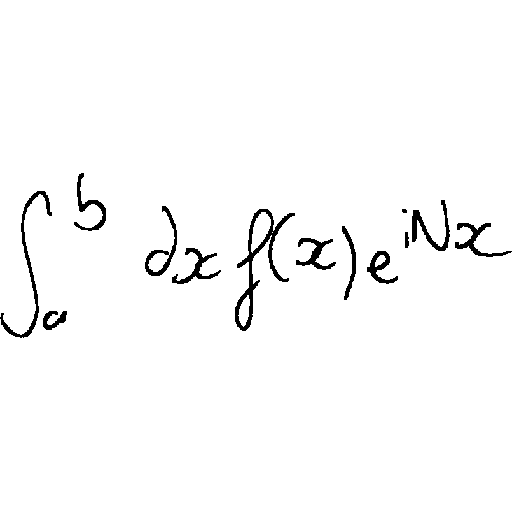 \int_a^b dx f(x) e^{iNx}